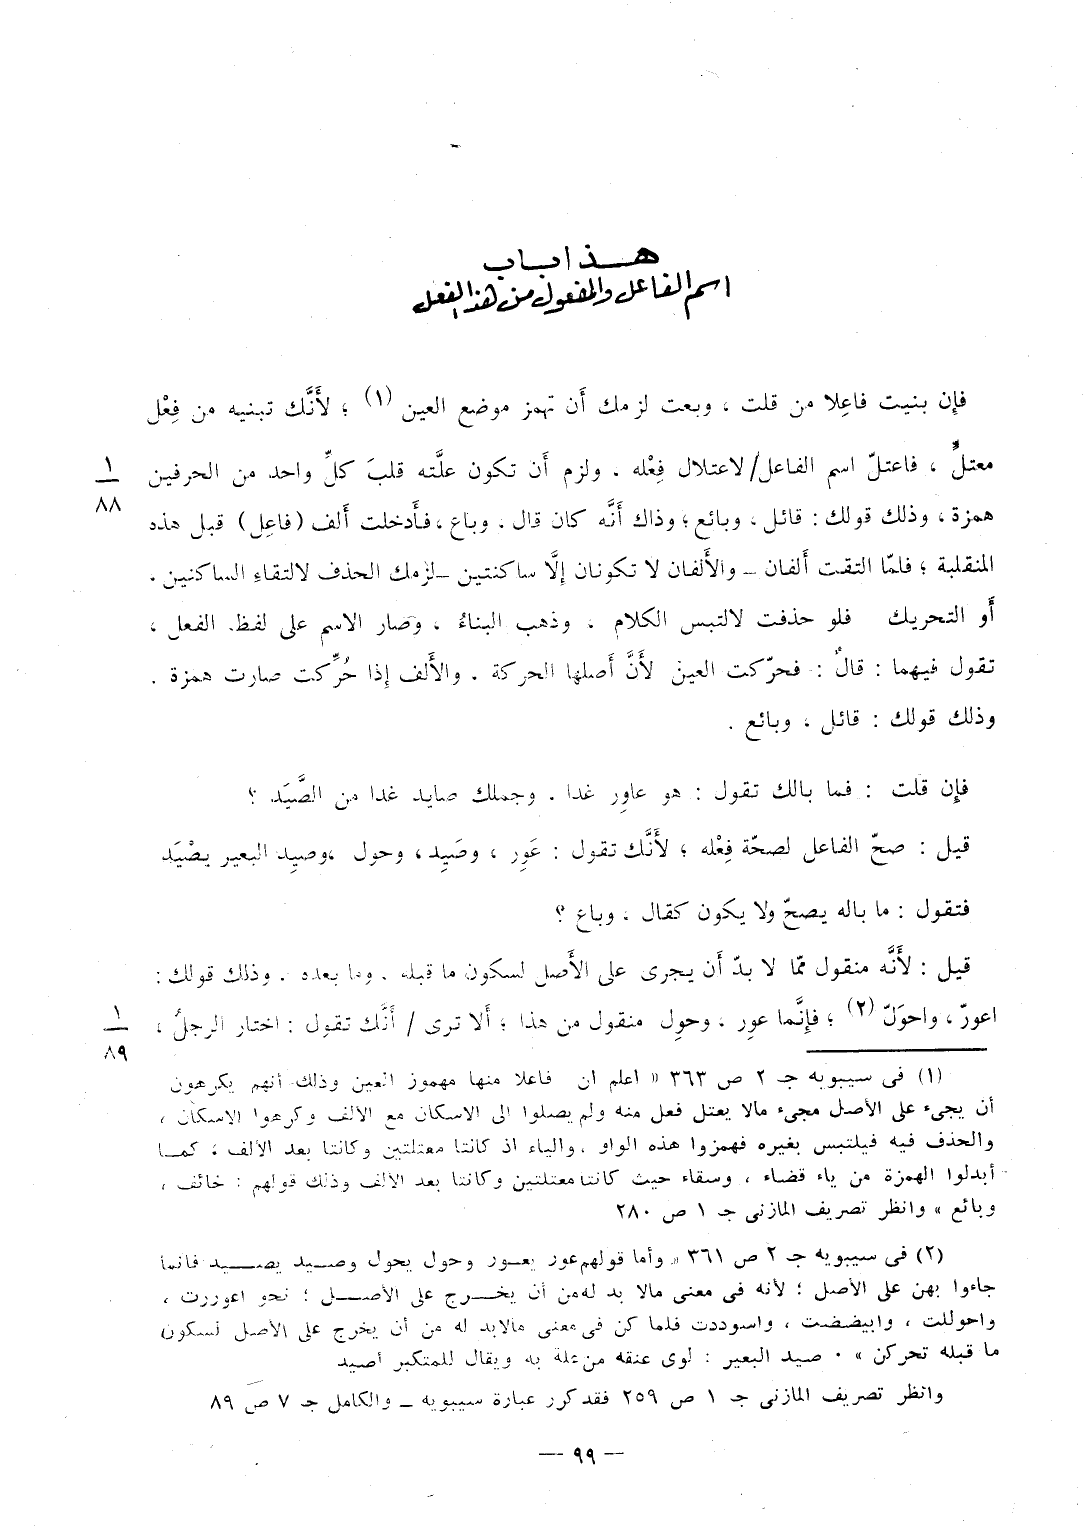 هذا باب
اسم الفاعل والمفعول من هذا الفعل
فإِن بنيت فاعِلا من قلت ، وبعت لزمك أَن تهمز موضع العين (١) ؛ لأَنَّك تبنيه من فِعْل
معتلٍّ ، فاعتلّ اسم الفاعل/لاعتلال فِعْله . ولزم أَن تكون علَّته قلبَ كلِّ واحد من الحرفين
١
٨٨
همزة ، وذلك قولك : قائل ، وبائع ؛ وذاك أَنَّه كان قال . وباع ، فأَدخلت أَلف (فاعِل) قبل هذه
المنقلبة ؛ فلمّا التقت أَلفان – والأَلفان لا تكونان إِلَّا ساكنتين – لزمك الحذف لالتقاء الساكنين .
أَو التحريك فلو حذفت لالتبس الكلام ، وذهب البناءُ ، وصار الاسم على لفظ الفعل ،
تقول فيهما : قالٌ : فحرّكت العين لأَنَّ أَصلها الحركة . والأَلف إِذا حُرِّكت صارت همزة .
وذلك قولك : قائل ، وبائع .
فإِن قلت : فما بالك تقول : هو عاوِر غدا . وجملك صايد غدا من الصَّيَد ؟
قيل : صحّ الفاعل لصحّة فِعْله ؛ لأَنَّك تقول : عَوِر ، وصَيِد ، وحول ، وصيِد البعير يصْيَد
فتقول : ما باله يصحّ ولا يكون كقال ، وباع ؟
قيل : لأَنَّه منقول ممّا لا بدّ أَن يجرى على الأَصل لسكون ما قبله . وما بعده . وذلك قولك :
اعورّ ، واحوَلّ (٢) ؛ فإِنَّما عوِر ، وحوِل منقول من هذا ؛ أَلا ترى / أَنَّك تقول : اختار الرجلُ ،
١
٨٩
(١) فى سيبويه جـ ٢ ص ٣٦٣ « اعلم ان فاعلا منها مهموز العين وذلك أنهم يكرهون
أن يجىء على الأصل مجىء مالا يعتل فعل منه ولم يصلوا الى الاسكان مع الالف وكرهوا الاسكان ،
والحذف فيه فيلتبس بغيره فهمزوا هذه الواو ، والياء اذ كانتا معتلتين وكانتا بعد الألف ، كمــا
أبدلوا الهمزة من ياء قضاء ، وسقاء حيث كانتا معتلتين وكانتا بعد الألف وذلك قولهم : خائف ،
وبائع » وانظر تصريف المازنى جـ ١ ص ٢٨٠
(٢) فى سيبويه جـ ٢ ص ٣٦١ « وأما قولهم عور يعــور وحول يحول وصــيد يصــــيد فانما
جاءوا بهن على الأصل ؛ لأنه فى معنى مالا بد له من أن يخــرج على الأصــــل ؛ نحو اعوررت ،
واحوللت ، وابيضضت ، واسوددت فلما كن فى معنى مالابد له من أن يخرج على الأصل لسكون
ما قبله تحركن » . صيد البعير : لوى عنقه من علة به ويقال للمتكبر أصيد
وانظر تصريف المازنى جـ ١ ص ٢٥٩ فقد كرر عبارة سيبويه – والكامل جـ ٧ ص ٨٩
— ٩٩ —